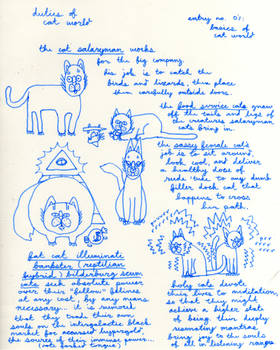 duties of
cat world
entry no. 01:
basics of
cat world
the cat salaryman works
for the big company.
his job is to catch the
birds and lizards, then place
them carefully outside doors.
the food service cats gnaw
off the tails and legs of
the creatures salaryman
cats bring in.
the sassey female cat's
job is to sit around,
look cool, and deliver
a healthy dose of
reeds 'tude to any dumb
filler dock cat that
happens to cross
his path.
fat cat illuminati
bankster (reptilian
hybrid) bilderburg scum
cats seek absolute power
over their "fellow" felines
at any cost, by any means
necessary... it is rumored
that they trade their own
souls on the intergalactic black
market for accursed
the source of their immense power...
(note forked tongue)
holy cats devote
their lives to meditation,
so that they might
achieve a higher state
of being. their deeply
resonating mantras
bring joy to the souls
of all in listening range